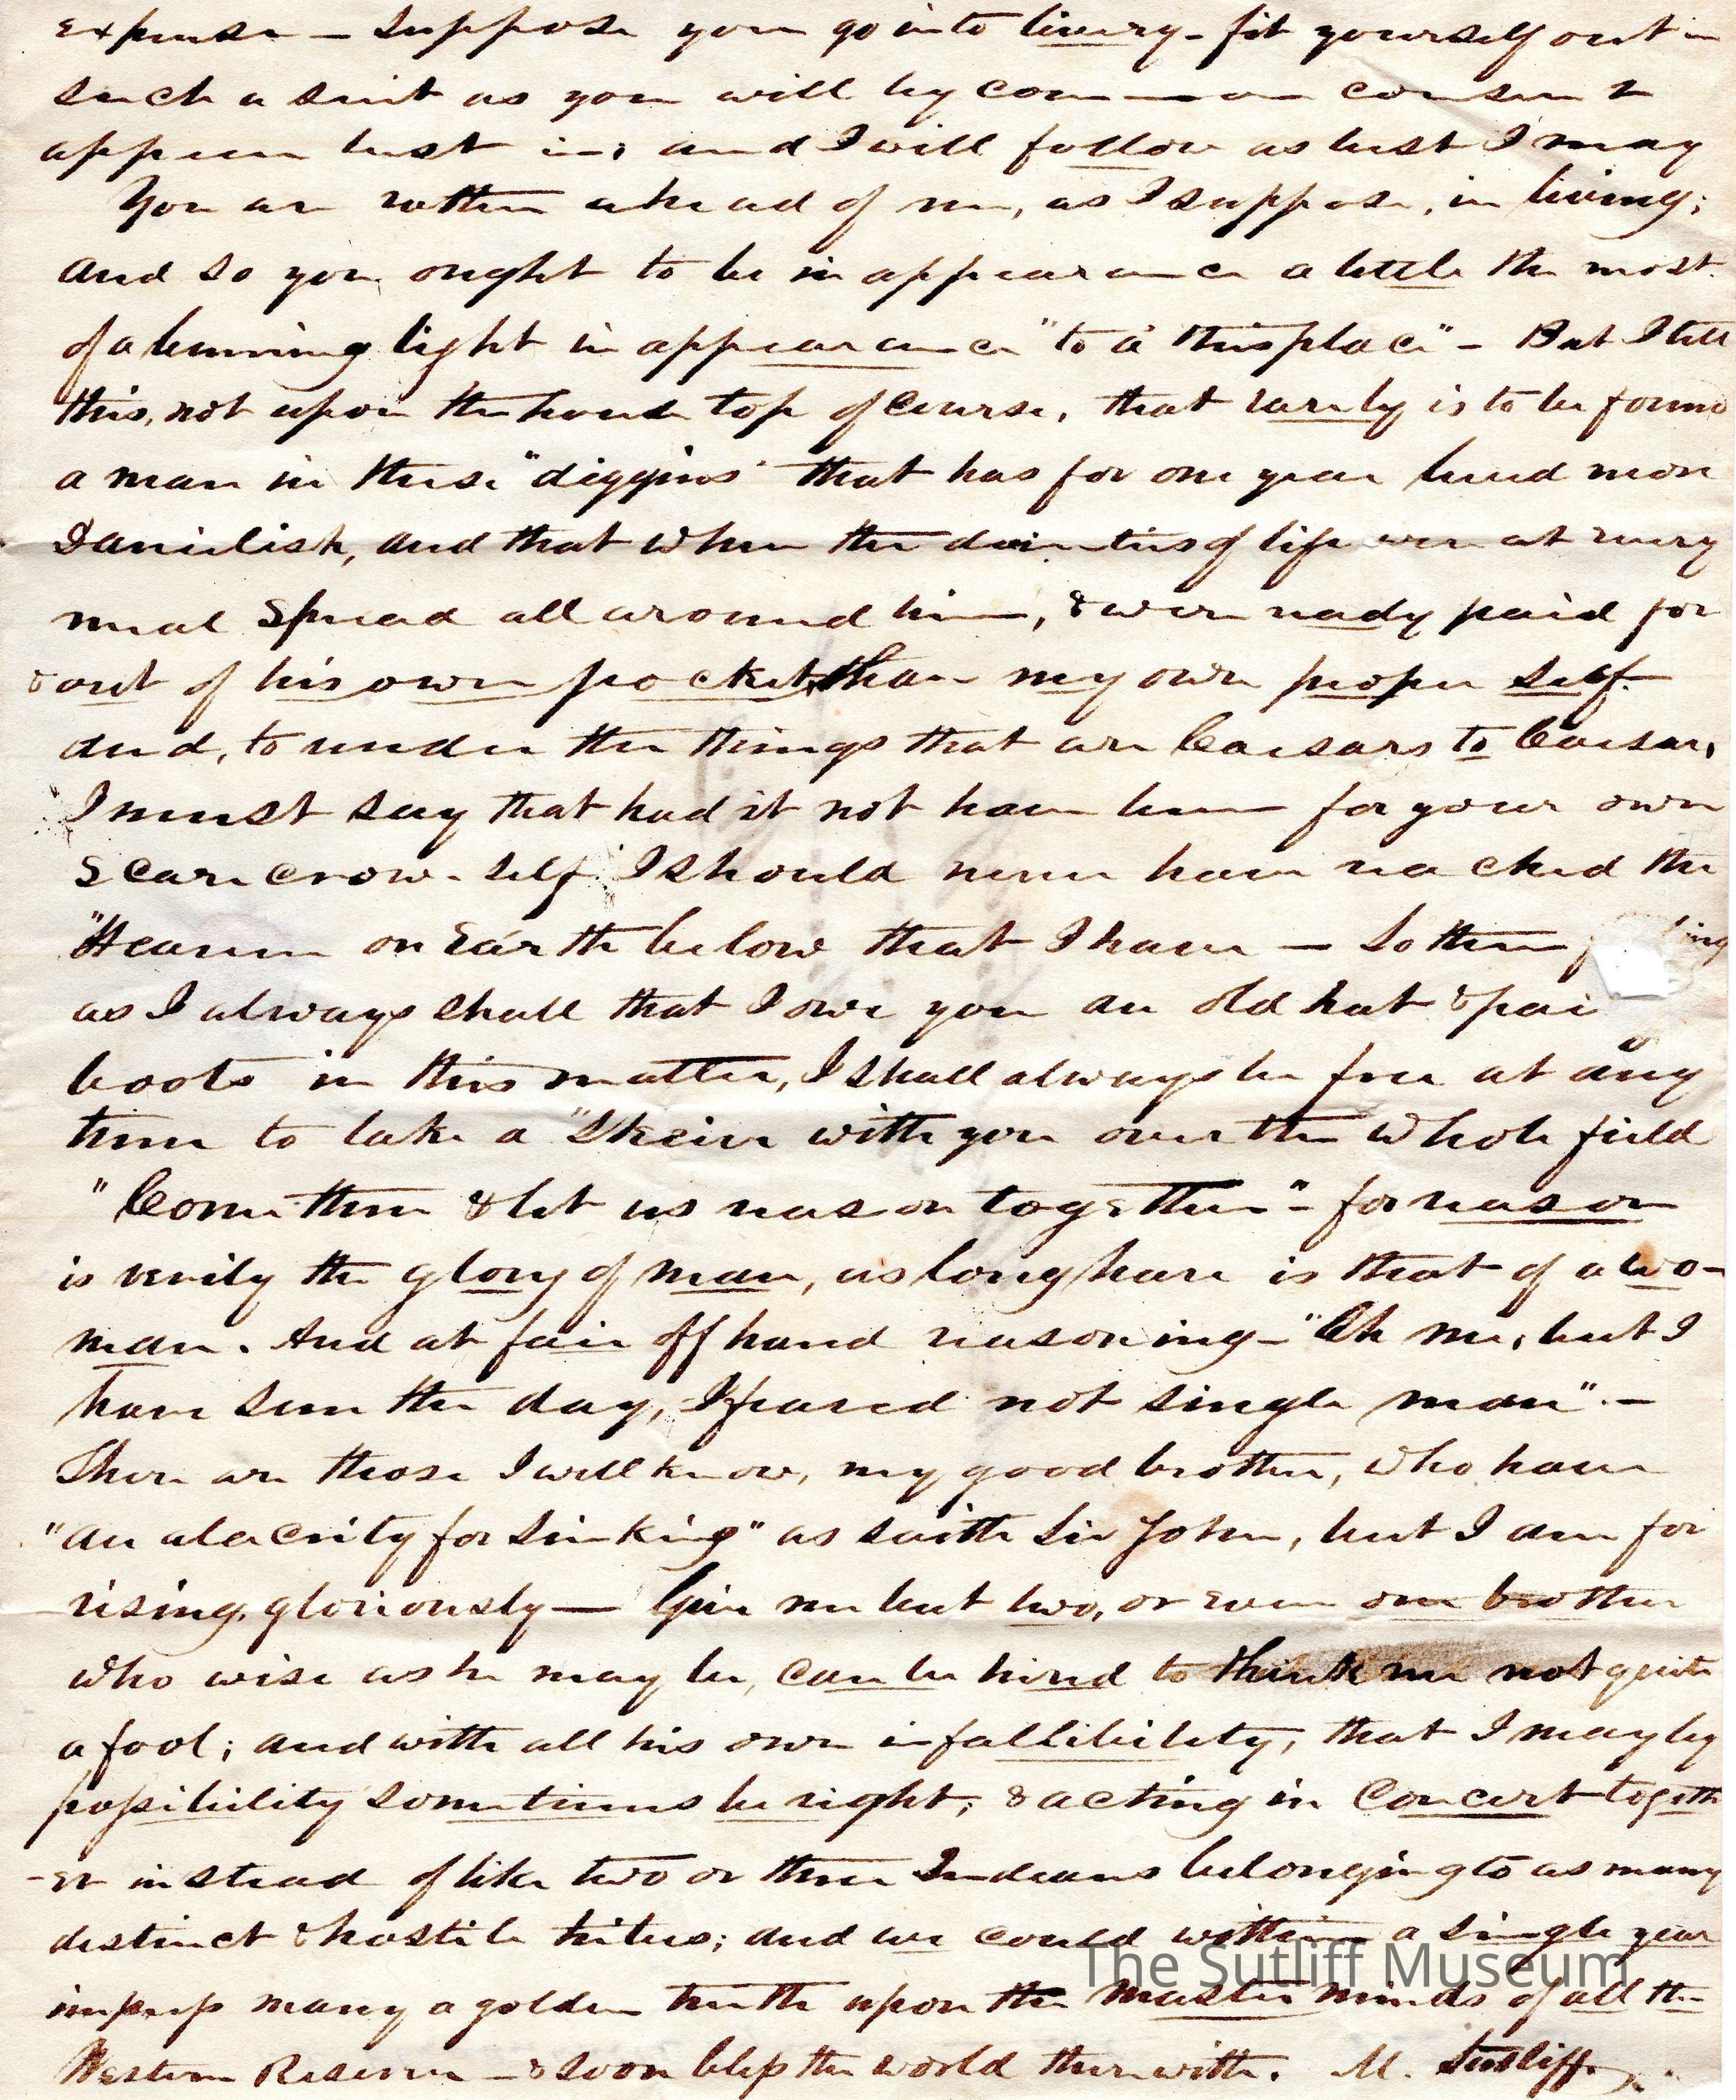 expense — Suppose you go into livery - fit yourself out in
such a suit as you will by common consent
appear best in; and I will follow as best I may
You are rather ahead of me, as I suppose, in living;
and so you ought to be in appearance a little the most
of a burning light in appearance "to a' this place" — But I tell
this, not upon the house top of course, that rarely is to be found
a man in these "diggins" that has for one year lived more
Danielish, and that when the dainties of life were at every
meal spread all around him, & were ready paid for
& out of his own pocket, than my own proper self.
And, to render the things that are Caesars to Caesar,
I must say that had it not have been for your own
scare crow - self I should never have reached the
"Heaven on Earth below that I have — So then
as I always shall that I owe you an old hat & pai
boots in this matter, I shall always be free at any
time to take a "Skein with you over the whole field
"Come then & let us reason together" - for reason
is verily the glory of man, as long hare is that of a wo-
man. And at fair off hand reasoning — "Ah me, but I
have seen the day, I feared not single man". —
There are those I well know, my good brother, who have
"an alacrity for sinking" as saith Sir John, but I am for
rising, gloriously — Give me but two, or even one brother
who wise as he may be, can be kind to think me not quite
a fool; and with all his own infallibility, that I may by
possibility sometimes be right; & acting in Concert togeth
-er instead of like two or three Indians belonging to as many
distinct & hostile tribes; and we could within a single year
impress many a golden truth upon the master minds of all the
Western Reserve — & soon bless the world therewith. M. Sutliff.
The Sutliff Museum